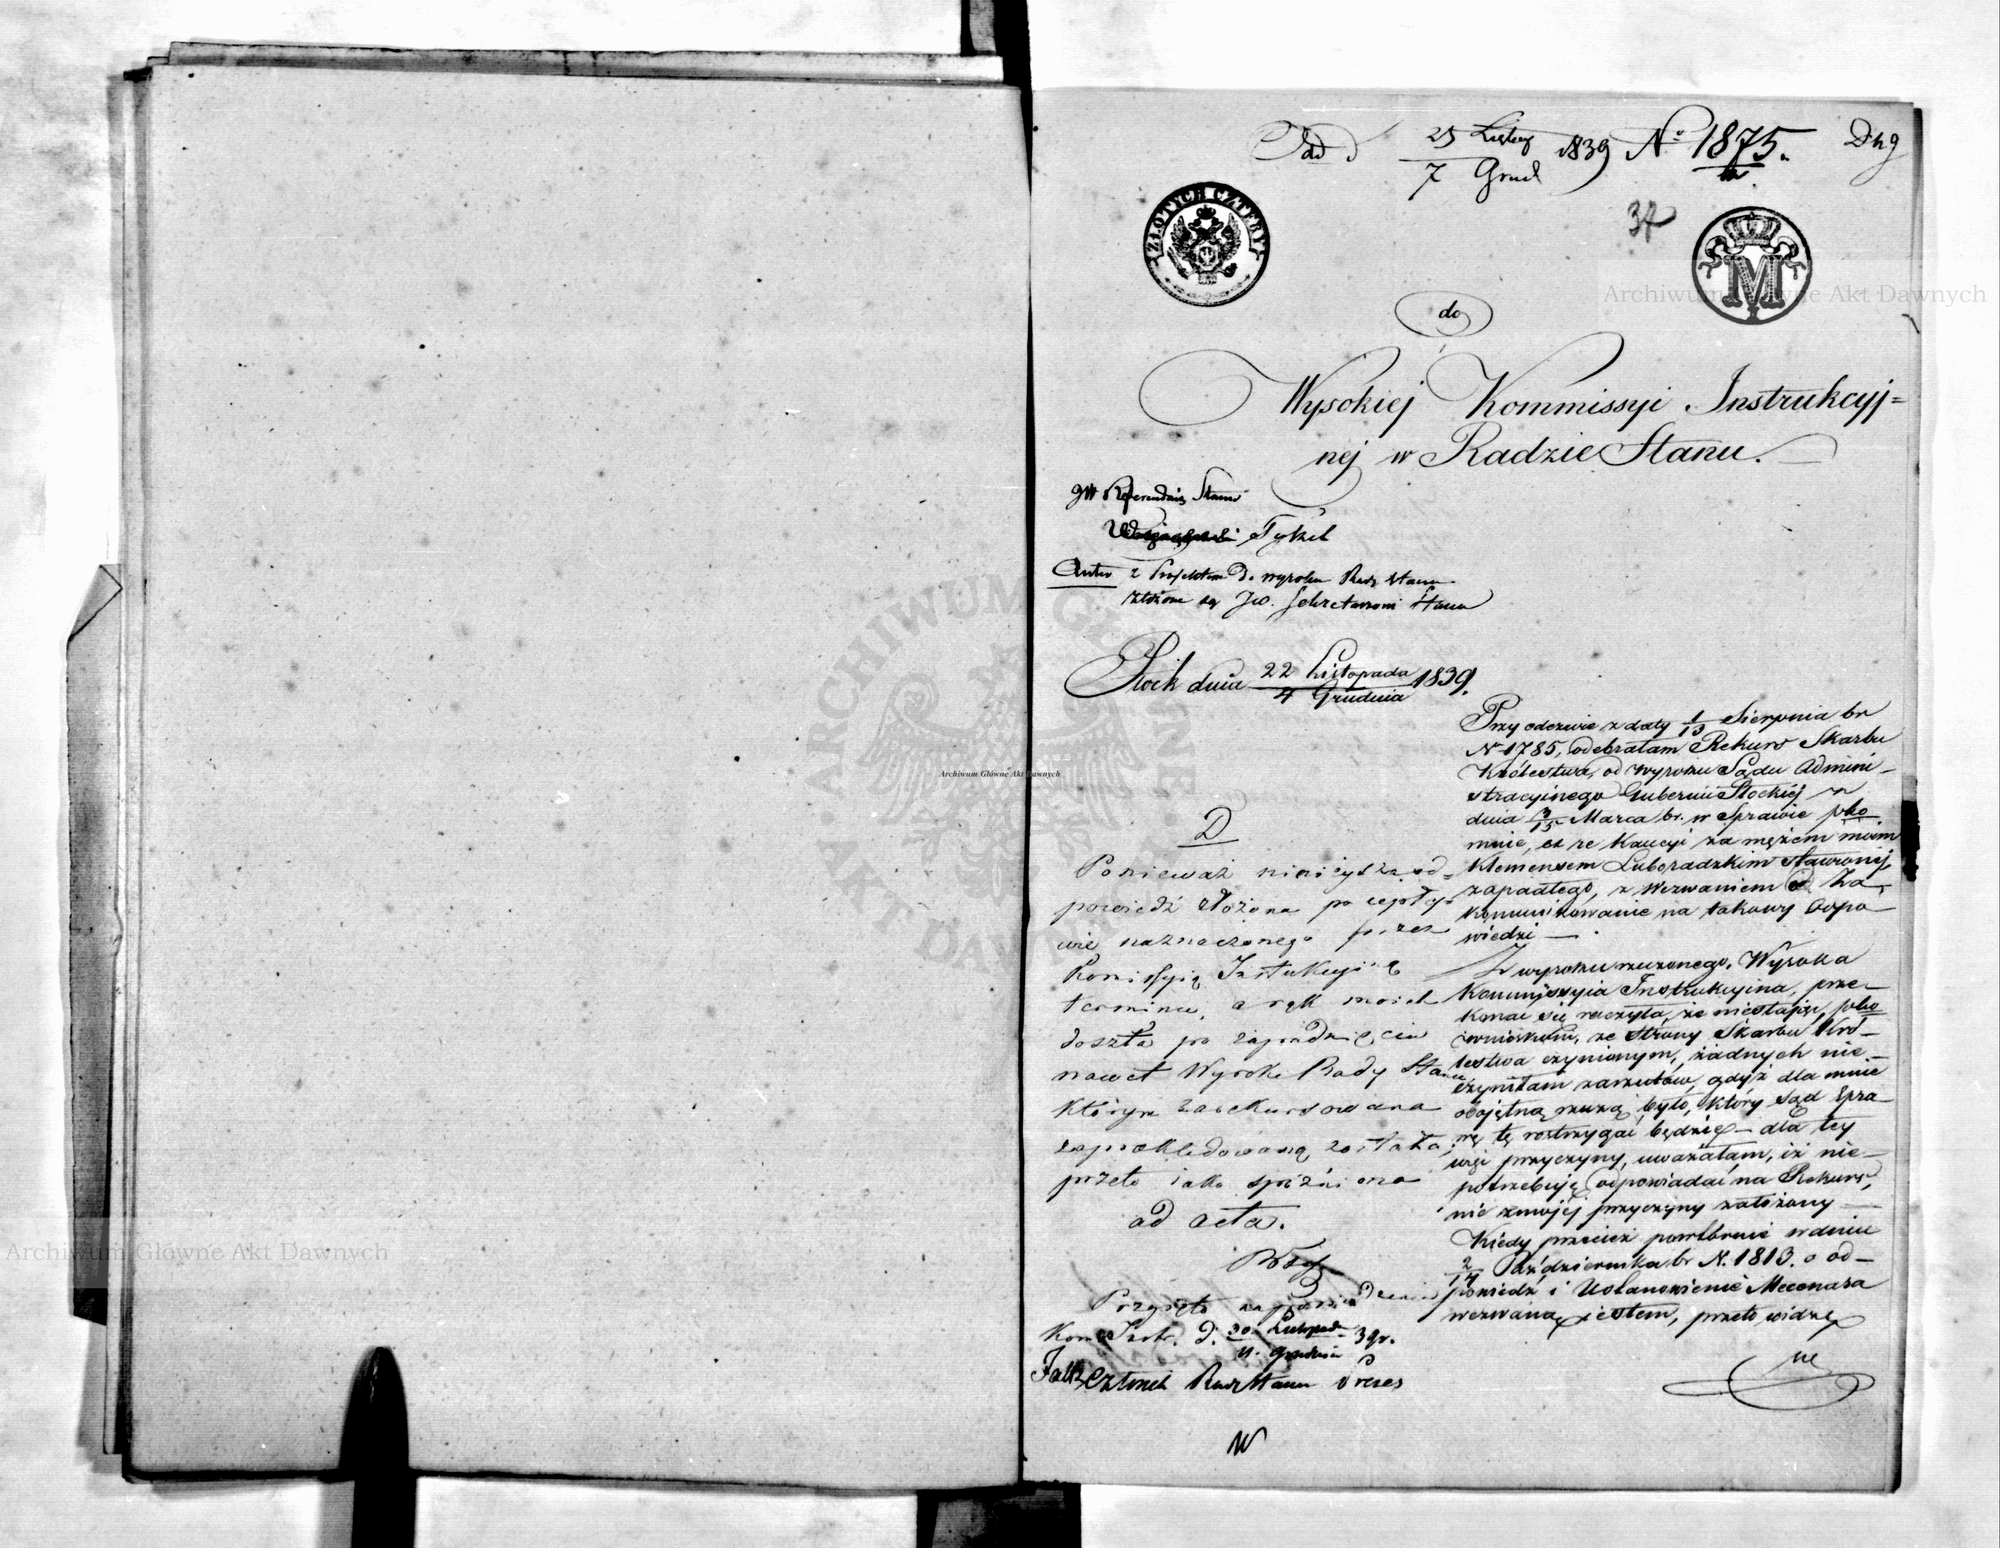 25 Listop / 7 Grud 1839 No 1875.
37
ZŁOTYCH CZTERY
M
do
Wysokiej Kommissyi Instrukcyj=
nej w Radzie Stanu.
JW Referendarz Stanu
Tykel
z Projektem do wyroku Rady Stanu
złożone są JW. Sekretarzowi Stanu
Płock dnia 22 Listopada / 4 Grudnia 1839.
Przy odezwie z daty 1/13 Sierpnia br
N 1785, odebrałam Rekurs Skarbu
Królestwa, od wyroku Sądu Admini-
stracyjnego Gubernii Płockiej w
dniu 3/15 Marca br. w Sprawie pko
mnie, ze Kaucyi za mężem moim
Klemensem Luboradzkim stawionej,
zapadłego, z wezwaniem o Za-
komunikowanie na takowy Odpo-
wiedzi —.
Z wyroku rzeczonego, Wysoka
Kommissyia Instrukcyina, prze-
konać się raczyła, że niestając, pko
wnioskom, ze strony Skarbu Kró-
lestwa czynionym, żadnych nie-
czyniłam zarzutów, gdyż dla mnie
obojętną rzeczą było, który Sąd Spra-
wę tę rostrzygać będzie — dla tey
więc przyczyny, uważałam, iż nie-
potrzebuję odpowiadać na Rekurs,
nie zmojej przyczyny założony —
Kiedy przecież powtórnie w dniu
2/14 Października br N. 1813. o od-
powiedź i Ustanowienie Mecenasa
wezwaną jestem, przeto widzę
D
Ponieważ niniejsza od=
powiedź złożona po upły-
wie naznaczonego przez
Komissyią Instrukcyiną
terminu, a rąk moich
doszła po zapadnięciu
nawet Wyroku Rady Stanu
którym zarekursowana
została,
przeto jako spóźniona
ad acta.
Przyjęto na posiedzeniu
Kom Instr. d. 30 Listopada / 11. Grudnia 39 r.
Członek Rady Stanu Prezes
Archiwum Główne Akt Dawnych
Archiwum Główne Akt Dawnych
Archiwum Główne Akt Dawnych
ARCHIWUM GŁÓWNE AKT DAWNYCH